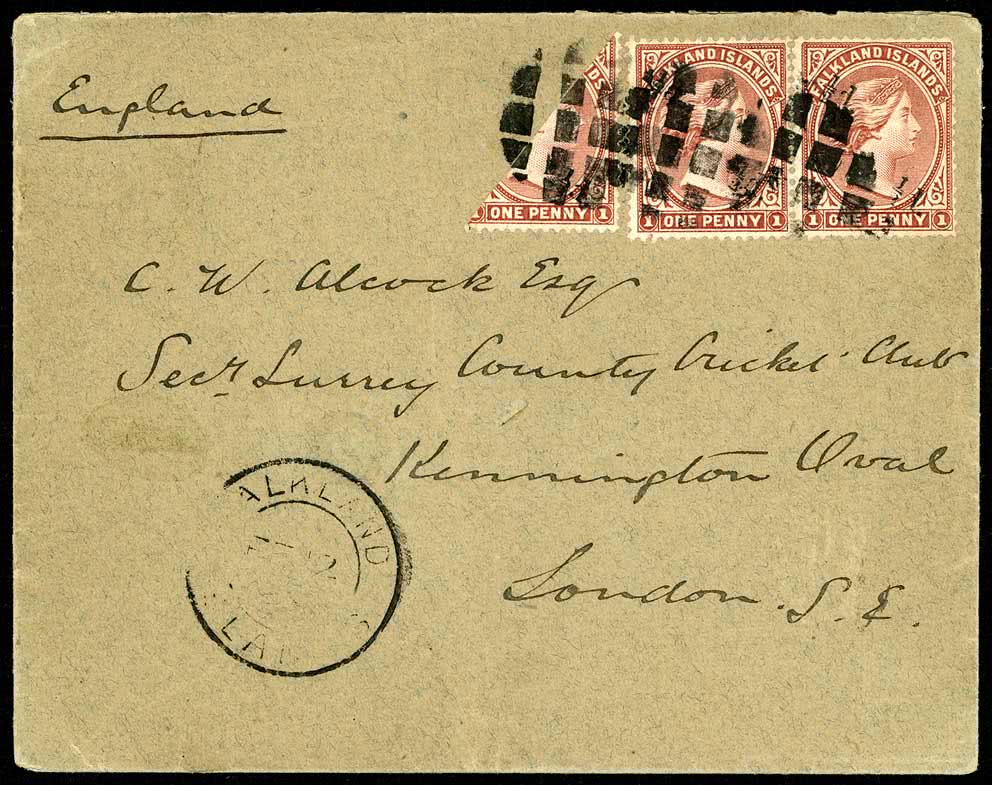 England
ONE PENNY 1
FALKLAND ISLANDS
1 ONE PENNY 1
FALKLAND ISLANDS
1 ONE PENNY 1
C. W. Alcock Esq
Secy Surrey County Cricket Club
Kennington Oval
London. S. E.
ALKLAND